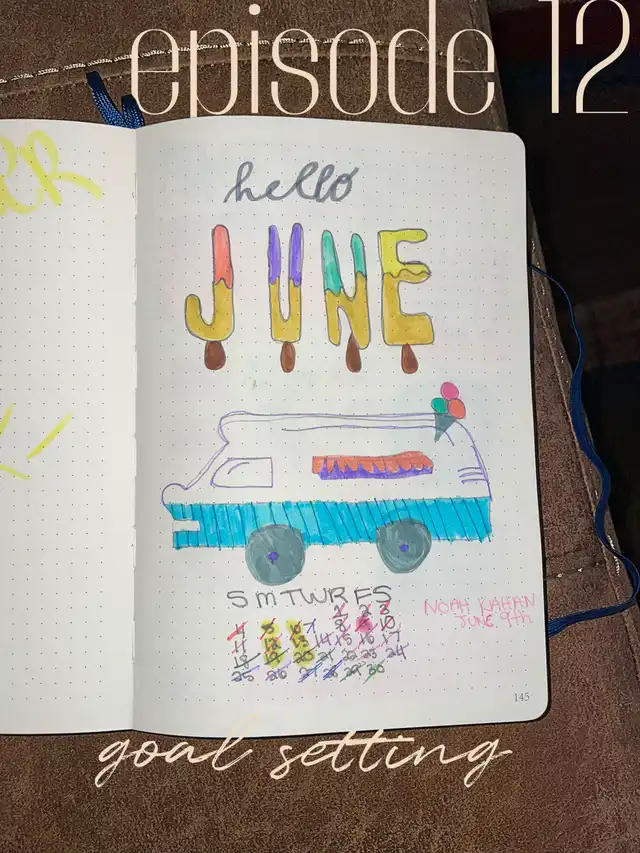 episode 12
hello
JUNE
S M T W R F S
1 2 3
4 5 6 7 8 9 10
11 12 13 14 15 16 17
18 19 20 21 22 23 24
25 26 27 28 29 30
NOAH KAHAN
JUNE 9th
145
goal setting